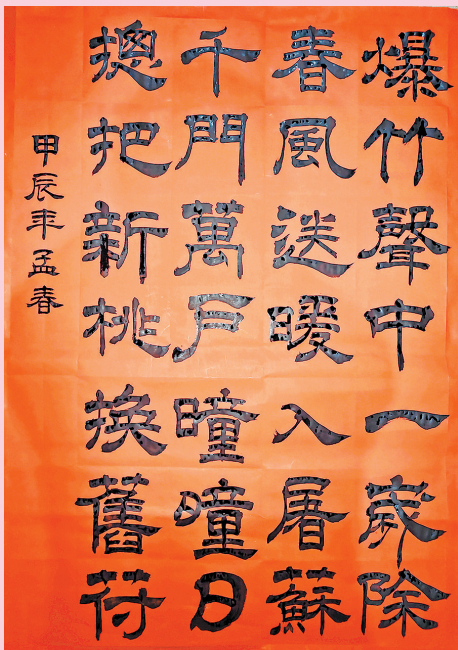 爆竹聲中一歲除
春風送暖入屠蘇
千門萬戶曈曈日
總把新桃換舊符
甲辰年孟春